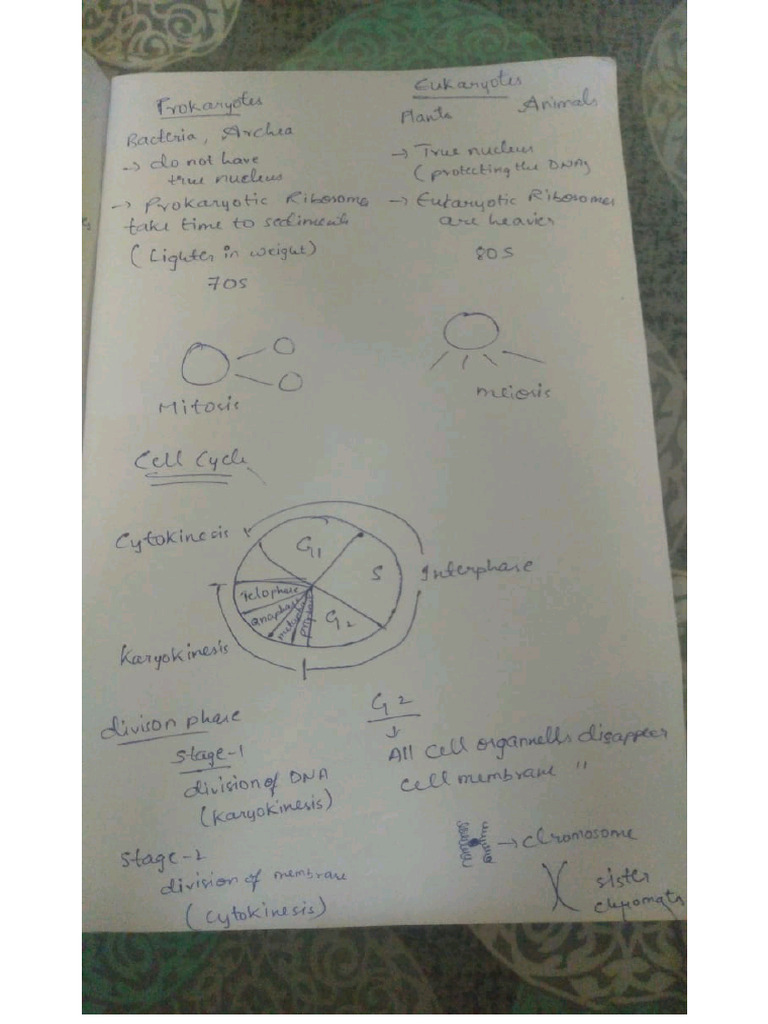 Prokaryotes
Bacteria, Archea
→ do not have
true nucleus
→ Prokaryotic Ribosome
take time to sediment
(Lighter in weight)
70s
Eukaryotes
Plants Animals
→ True nucleus
(protecting the DNA)
→ Eukaryotic Ribosomes
are heavier
80S
Mitosis
meiosis
Cell Cycle
Cytokinesis
G1
S
Interphase
Telophase
anaphase
metaphase
prophase
G2
Karyokinesis
divison phase
Stage-1
division of DNA
(Karyokinesis)
Stage-2
division of membrane
(Cytokinesis)
G2
↓
All cell organnells disappear
cell membrane "
→ chromosome
sister